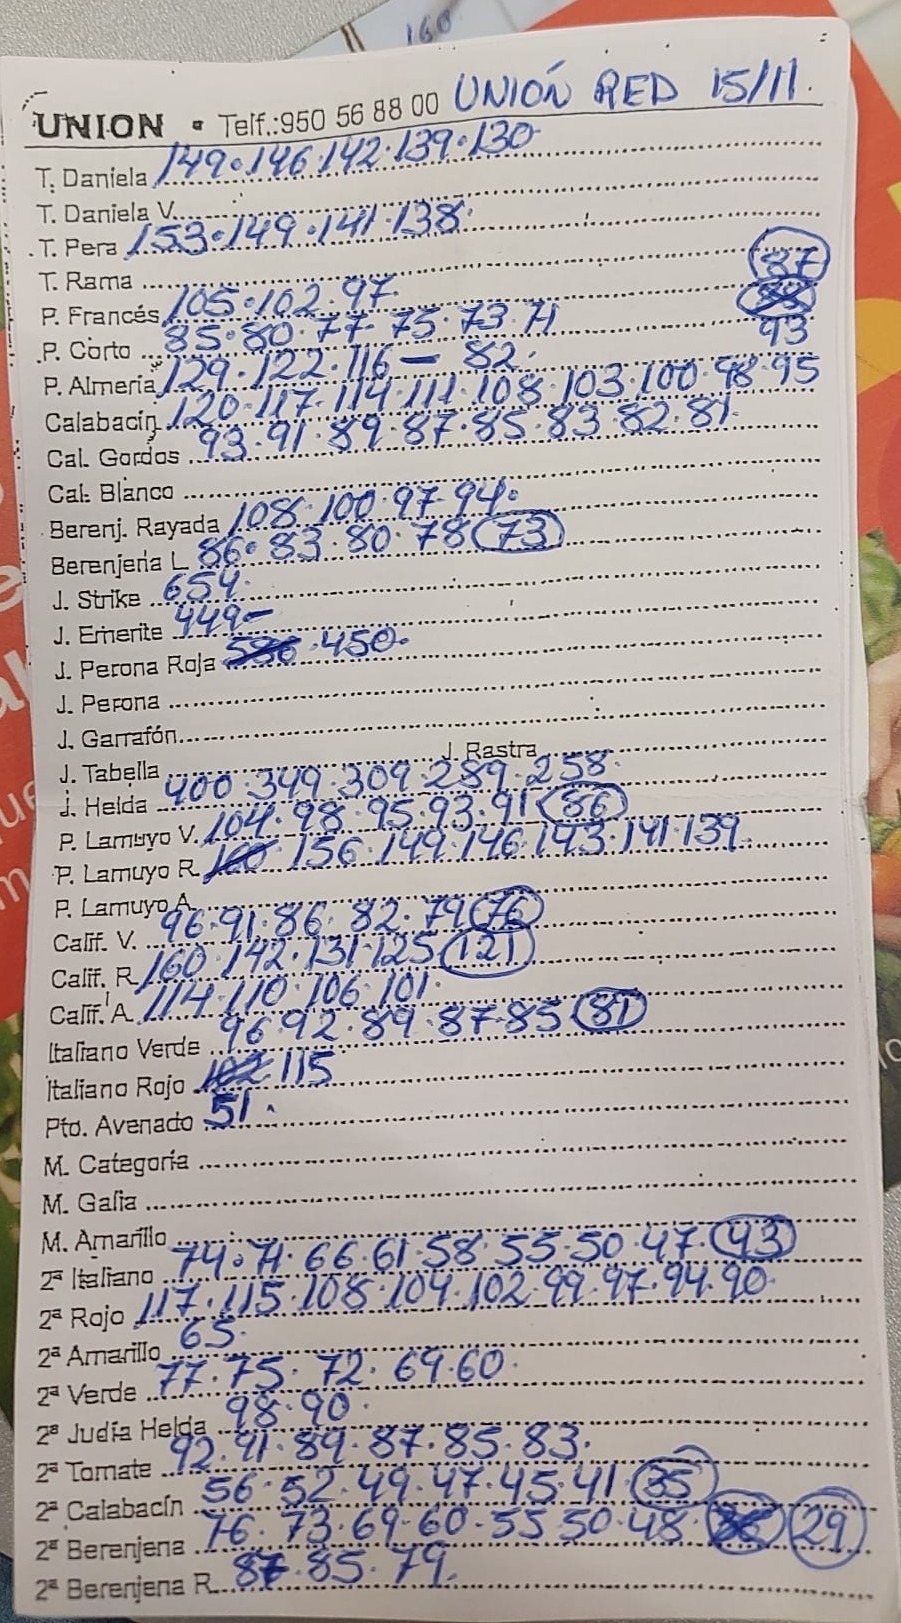 160
UNION • Telf.:950 56 88 00 UNIÓN RED 15/11.
T. Daniela 149.146.142.139.130
T. Daniela V.
T. Pera 153.149.141.138.
T. Rama
P. Francés 105.102.97. 87
P. Corto 85.80.77.75.73.71
P. Almería 129.122.116 - 82. 93
Calabacín 120.117.114.111.108.103.100.98.95
Cal. Gordos 93.91.89.87.85.83.82.81.
Cal. Blanco
Berenj. Rayada 108.100.97.94.
Berenjena L 86.83.80.78 73
J. Strike 654.
J. Emerite 449-
J. Perona Roja 586.450.
J. Perona
J. Garrafón
J. Tabella J. Rastra
J. Helda 400.349.309.289.258.
P. Lamuyo V. 104.98.95.93.91 86
P. Lamuyo R. 160 156.149.146.143.141.139.
P. Lamuyo A.
Calif. V. 96.91.86.82.79 76
Calif. R. 160.142.131.125 121
Calif. A. 114.110.106.101.
Italiano Verde 96 92.89.87.85 81
Italiano Rojo 102 115
Pto. Avenado 51.
M. Categoría
M. Galia
M. Amarillo
2ª Italiano 74.71.66.61.58.55.50.47. 43
2ª Rojo 117.115.108.104.102.99.97.94.90.
2ª Amarillo 65.
2ª Verde 77.75.72.69.60.
2ª Judía Helda 98.90.
2ª Tomate 92.91.89.87.85.83.
2ª Calabacín 56.52.49.47.45.41. 35
2ª Berenjena 76.73.69.60.55 50.48. 29
2ª Berenjena R. 87.85.79.